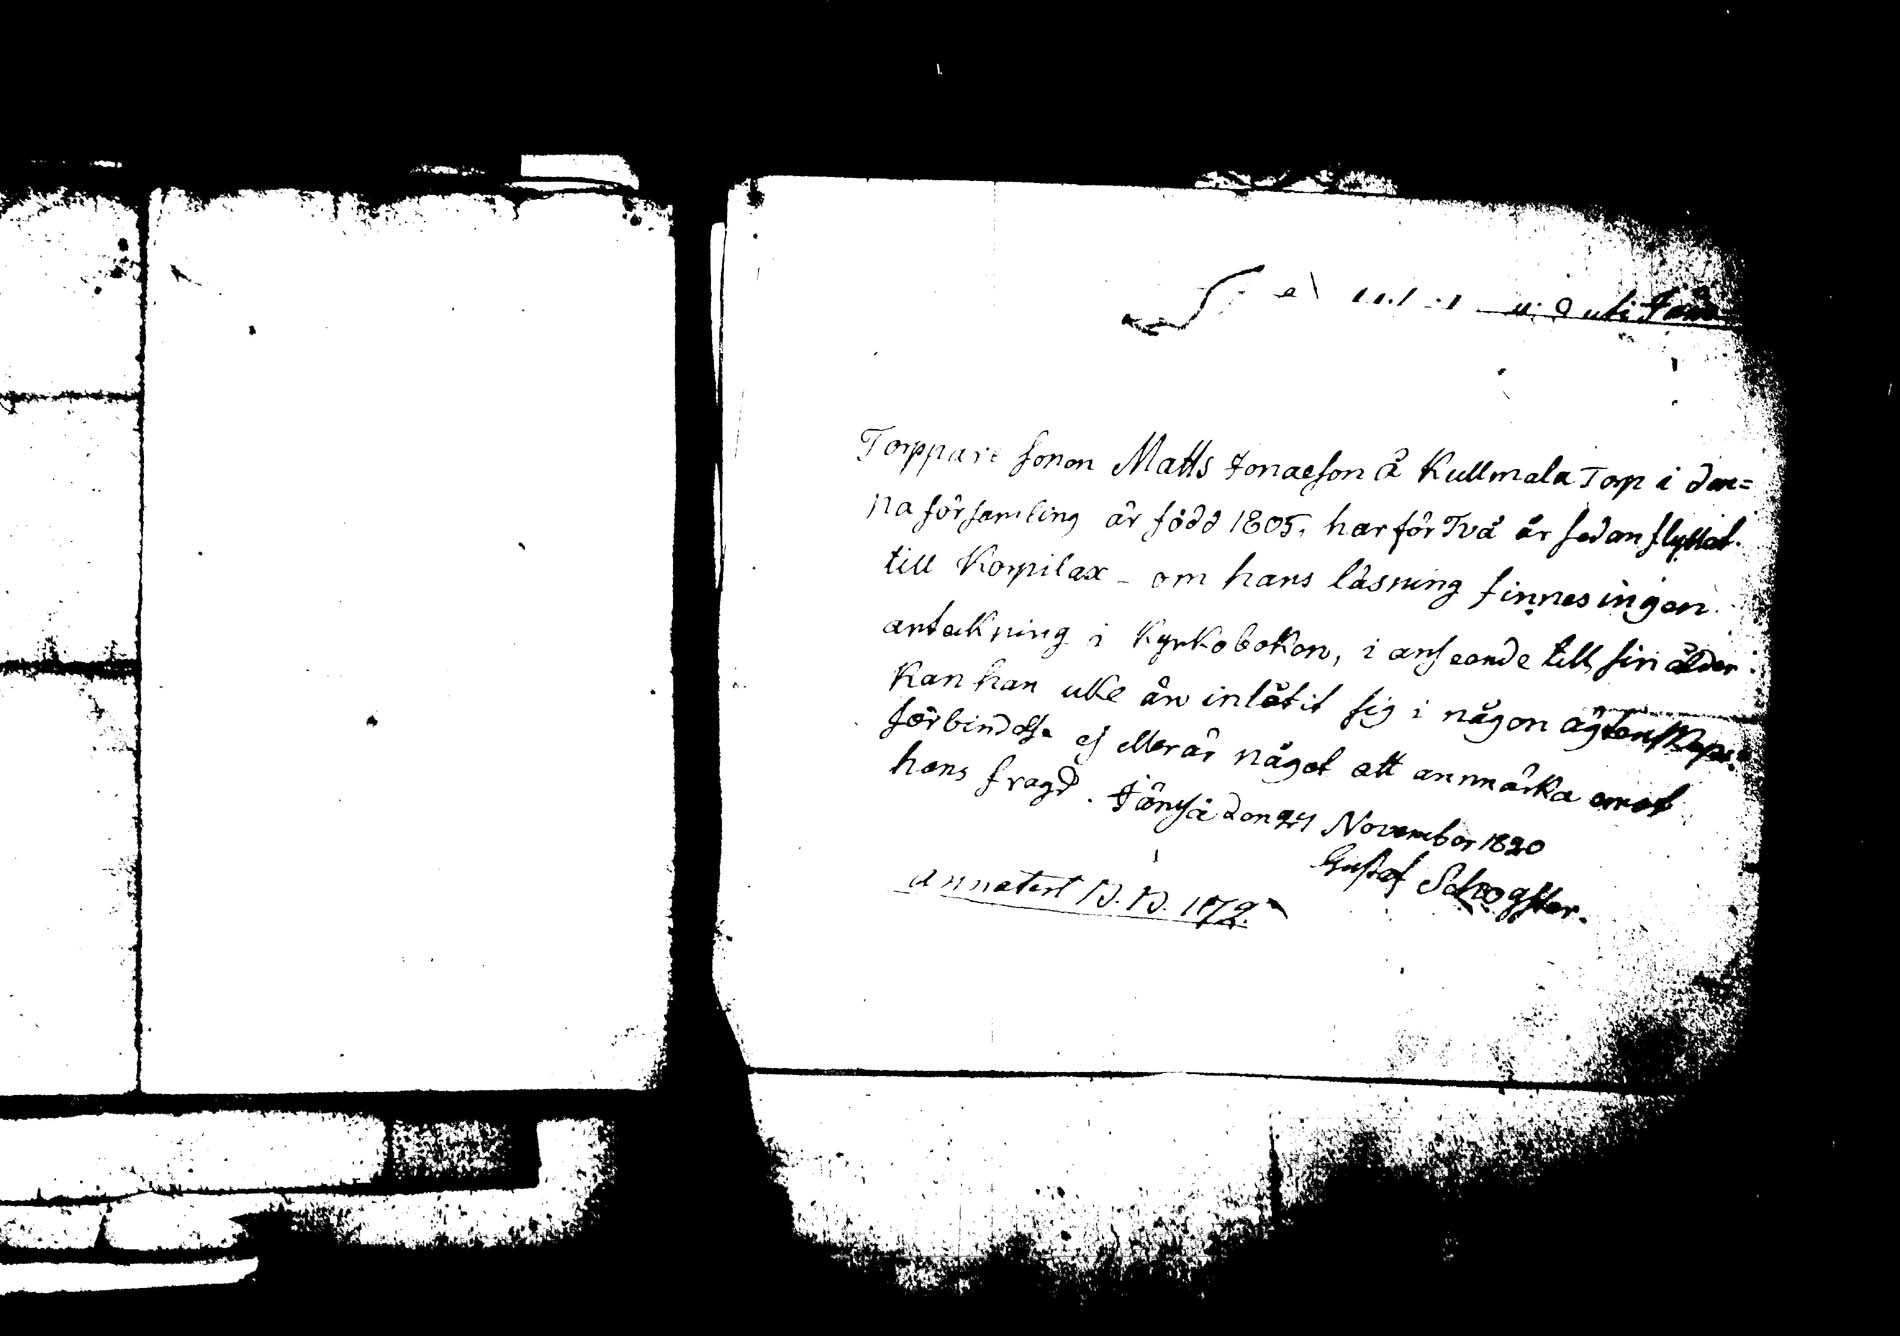 Torppare Sonen Matts Jonaeson å Kullmala Torp i den=
na församling är född 1805, har för Två år sedan flyttat
till Korpilax - om hans läsning finnes ingen
anteckning i Kyrkoboken, i anseende till sin ålder
kan han icke än inlåtit sig i någon ägtenskaps
förbindelse ej eller är något att anmärka emot
hans fragd. Jämsä den November 1820
Gustaf
annoterat 1872